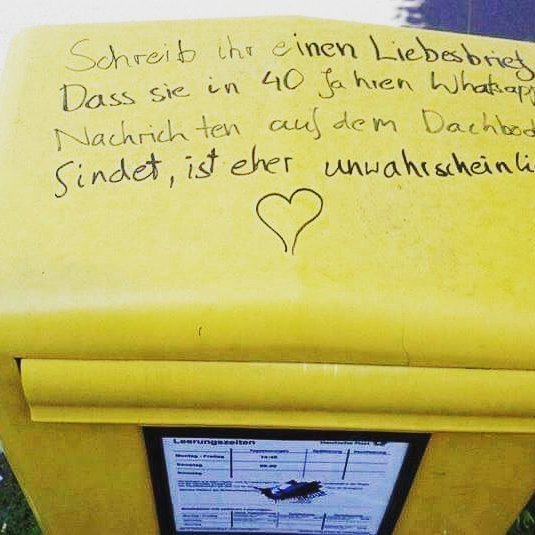 Schreib ihr einen Liebesbrief
Dass sie in 40 Jahren Whatsapp
Nachrichten auf dem Dachbod
findet, ist eher unwahrscheinli
Leerungszeiten
Deutsche Post
Montag - Freitag
Samstag
Sonntag